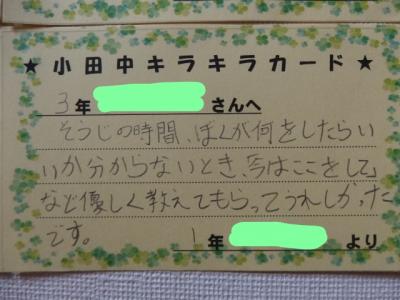 ★小田中キラキラカード★
3年 さんへ
そうじの時間、ぼくが何をしたらい
いか分からないとき、今はここをして」
など優しく教えてもらってうれしかった
です。
1年 より